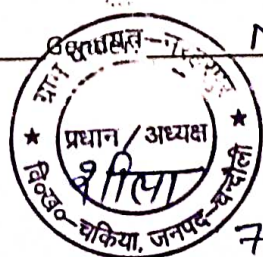 ग्राम पंचायत-
प्रधान / अध्यक्ष
शीला
वि०ख०-चकिया, जनपद-चन्दौली
N
7